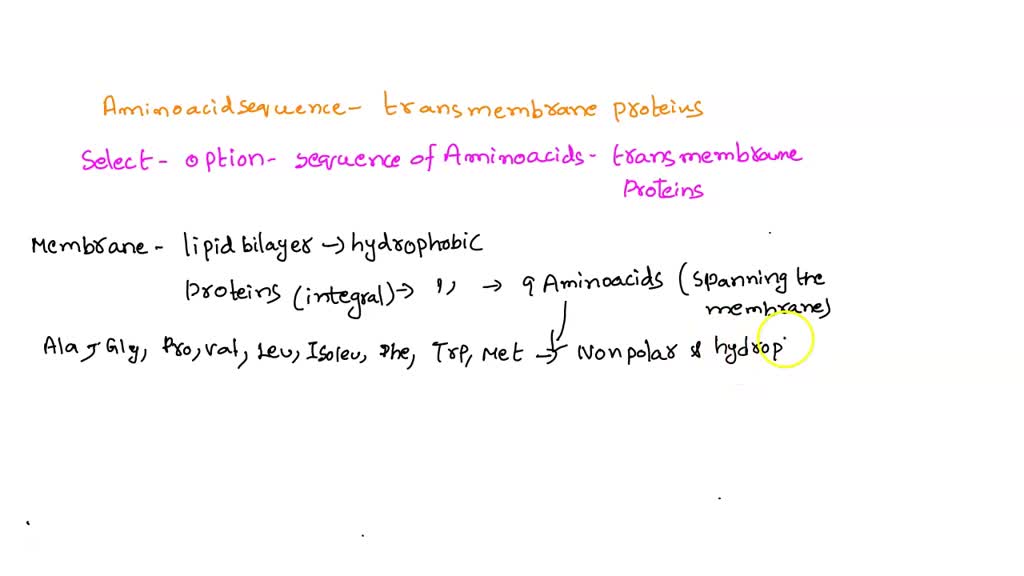 Aminoacid sequence - transmembrane proteins
Select - option - sequence of Aminoacids - transmembrane
Proteins
Membrane - lipid bilayer → hydrophobic
proteins (integral) → ,, → 9 Aminoacids (spanning the
membranes)
Ala, Gly, Pro, Val, Leu, Isoleu, Phe, Trp, Met → Nonpolar & hydrop